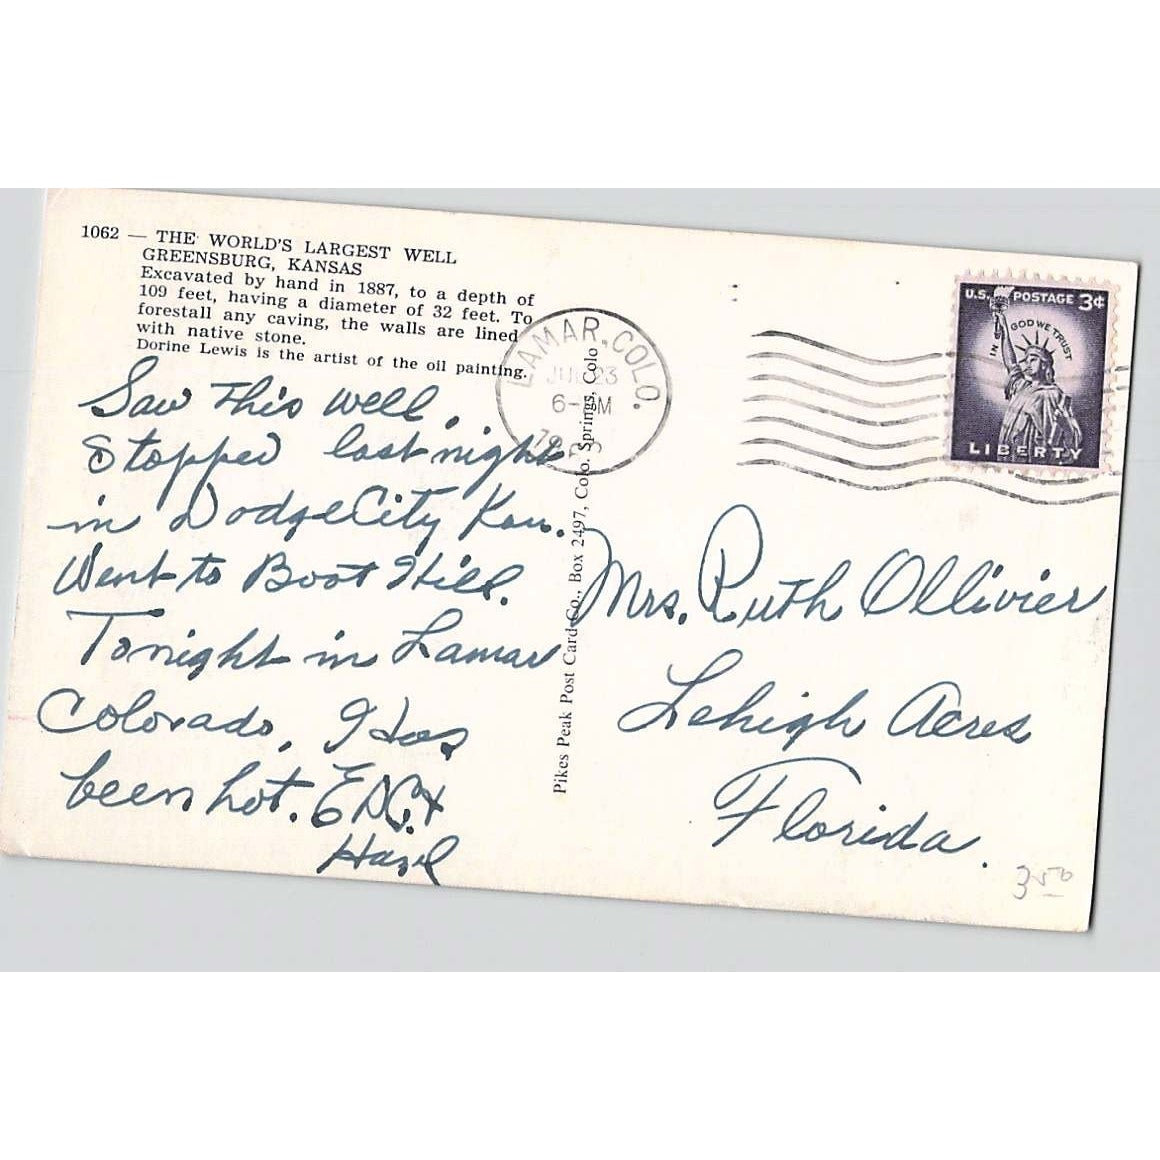 1062 — THE WORLD'S LARGEST WELL
GREENSBURG, KANSAS
Excavated by hand in 1887, to a depth of
109 feet, having a diameter of 32 feet. To
forestall any caving, the walls are lined
with native stone.
Dorine Lewis is the artist of the oil painting.
Saw This well.
Stopped last night
in Dodge City Kan.
Went to Boot Hill.
Tonight in Lamar
Colorado,
been hot.
Hazel
Pikes Peak Post Card Co., Box 2497, Colo. Springs, Colo
LAMAR, COLO.
23
U.S. POSTAGE 3¢
IN GOD WE TRUST
LIBERTY
Mrs. Ruth Ollivier
Lehigh Acres
Florida.
350